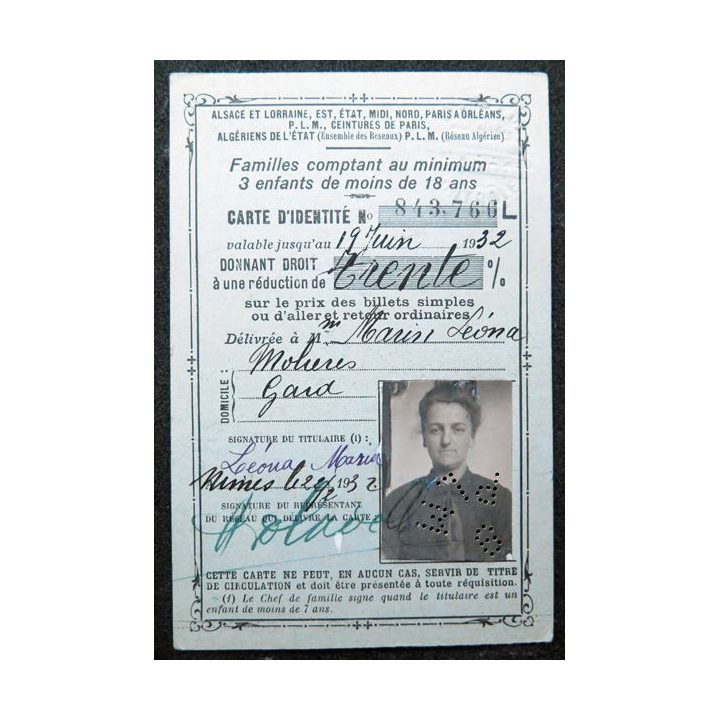 ALSACE ET LORRAINE, EST, ÉTAT, MIDI, NORD, PARIS A ORLÉANS,
P.L.M., CEINTURES DE PARIS,
ALGÉRIENS DE L'ÉTAT (Ensemble des Réseaux) P.L.M. (Réseau Algérien)
Familles comptant au minimum
3 enfants de moins de 18 ans
CARTE D'IDENTITÉ No 843,766 L
valable jusqu'au 19 Juin 1932
DONNANT DROIT
à une réduction de Trente %
sur le prix des billets simples
ou d'aller et retour ordinaires
Délivrée à M me Marin Léona
DOMICILE :
Molières
Gard
SIGNATURE DU TITULAIRE (1) :
Léona Marin
Nimes le 22 1932
SIGNATURE DU REPRÉSENTANT
DU RÉSEAU QUI DÉLIVRE LA CARTE :
CETTE CARTE NE PEUT, EN AUCUN CAS, SERVIR DE TITRE
DE CIRCULATION et doit être présentée à toute réquisition.
(1) Le Chef de famille signe quand le titulaire est un
enfant de moins de 7 ans.